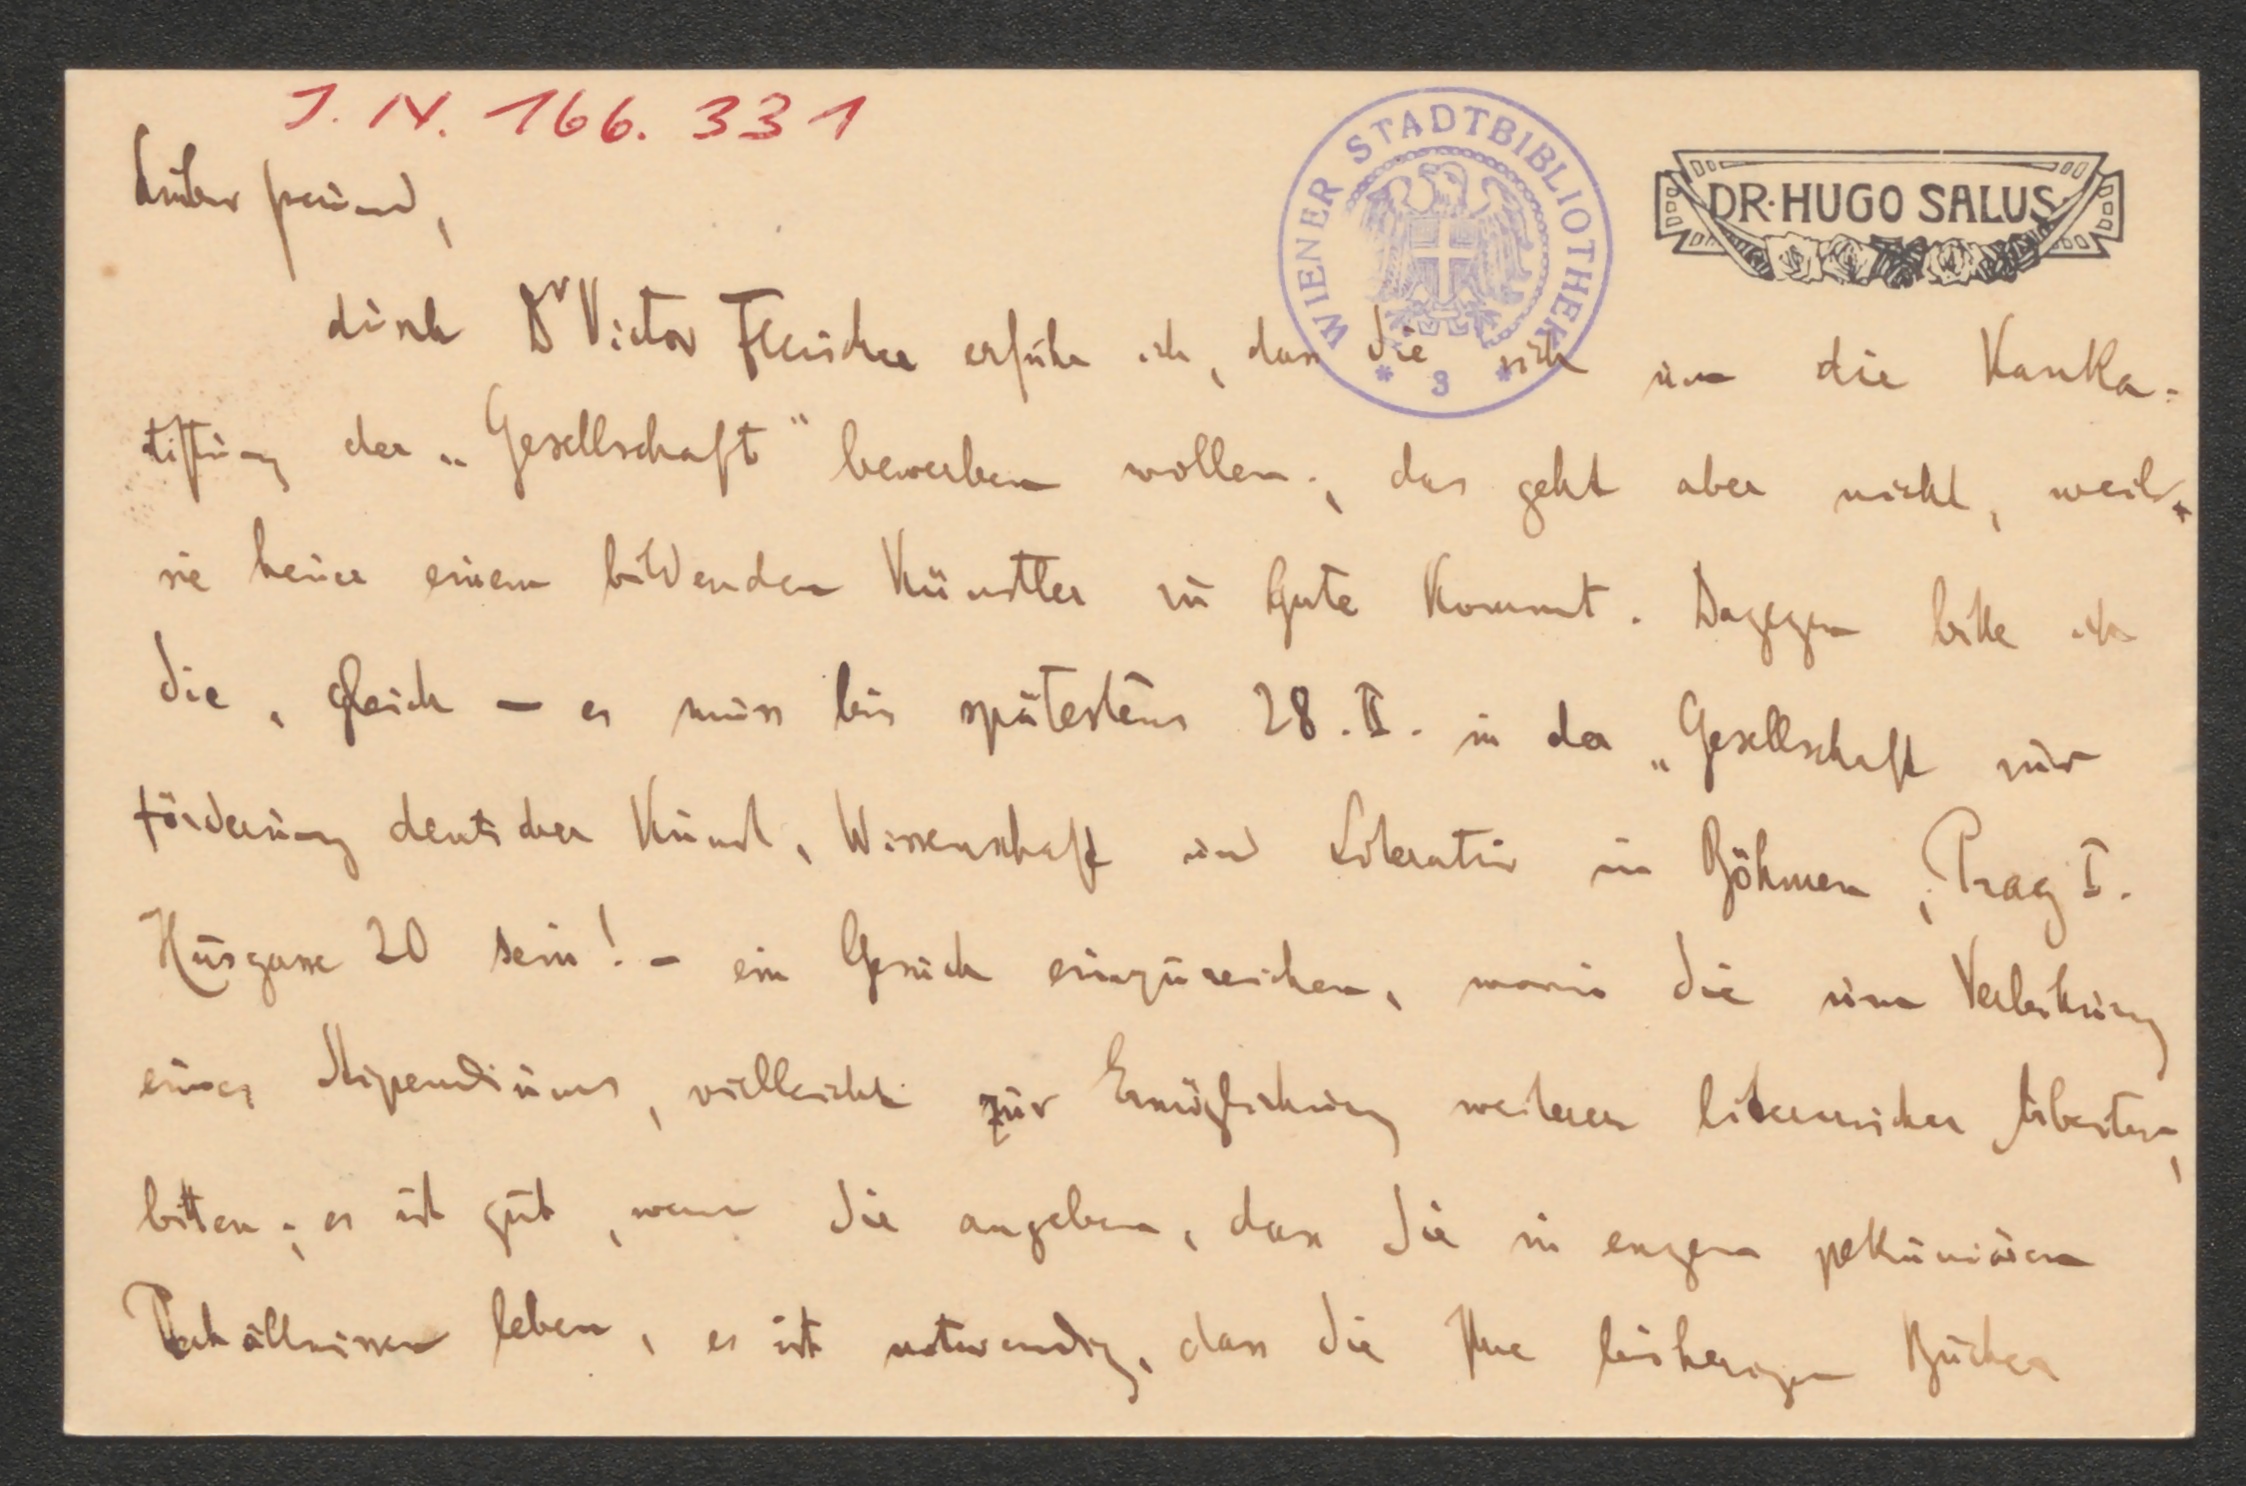 J. N. 166.331
WIENER STADTBIBLIOTHEK
* 3 *
DR. HUGO SALUS
Lieber Freund,
durch Dr Victor Fleischer erfuhr ich, dass Sie sich um die Kanka=
stiftung der „Gesellschaft“ bewerben wollen; das geht aber nicht, weil
sie heuer einem bildenden Künstler zu Gute kommt. Dagegen bitte ich
Sie, gleich — es muss bis spätestens 28.II. in der „Gesellschaft zur
Förderung deutscher Kunst, Wissenschaft und Literatur in Böhmen, Prag I.
Husgasse 20 sein! — ein Gesuch einzureichen, worin Sie um Verleihung
eines Stipendiums, vielleicht zur Ermöglichung weiterer literarischer Arbeiten,
bitten; es ist gut, wenn Sie angeben, dass Sie in engen pekuniären
Verhältnissen leben, es ist notwendig, dass Sie Ihre bisherigen Bücher